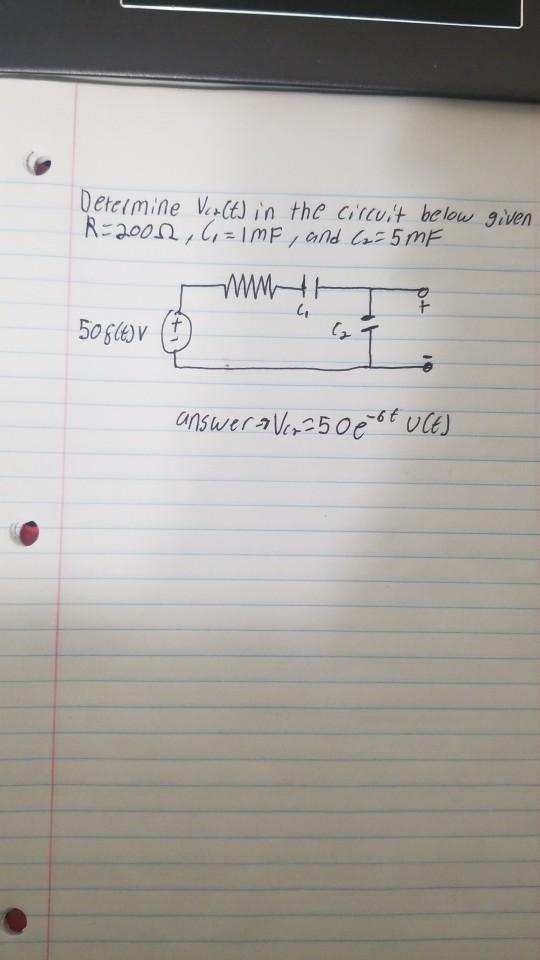 Determine Vc₂(t) in the circuit below given
R=200Ω, C₁=1mF, and C₂=5mF
C₁
+
50δ(t)V
+
-
C₂
-
answer→Vc₂=50e⁻⁶ᵗ U(t)